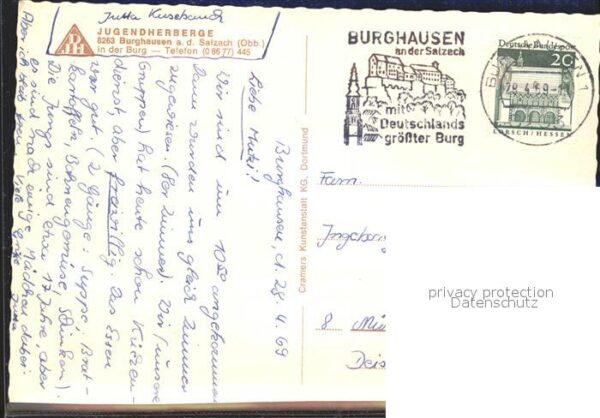 Jutta
JUGENDHERBERGE
8263 Burghausen a. d. Salzach (Obb.)
in der Burg — Telefon (0 86 77) 445
BURGHAUSEN
an der Salzach
mit
Deutschlands
größter Burg
Deutsche Bundespost
20
LORSCH/HESSEN
Burghausen, d. 28.4.69
Liebe Mutti!
Wir sind um 10 angekommen.
Dann wurden uns gleich Zimmer
zugewiesen. (8er Zimmer). Wir (unsere
Gruppe) hat heute schon Küchen-
dienst, aber freiwillig. Das Essen
war gut. (2 Gänge: Suppe, Brat-
kartoffeln, Bohnengemüse, Schinken).
Die Jungs sind etwa 17 Jahre, aber
es sind auch einige Mädchen dabei.
Aber ich
Viele Grüße
Cramers Kunstanstalt KG. Dortmund
Fam.
8
privacy protection
Datenschutz